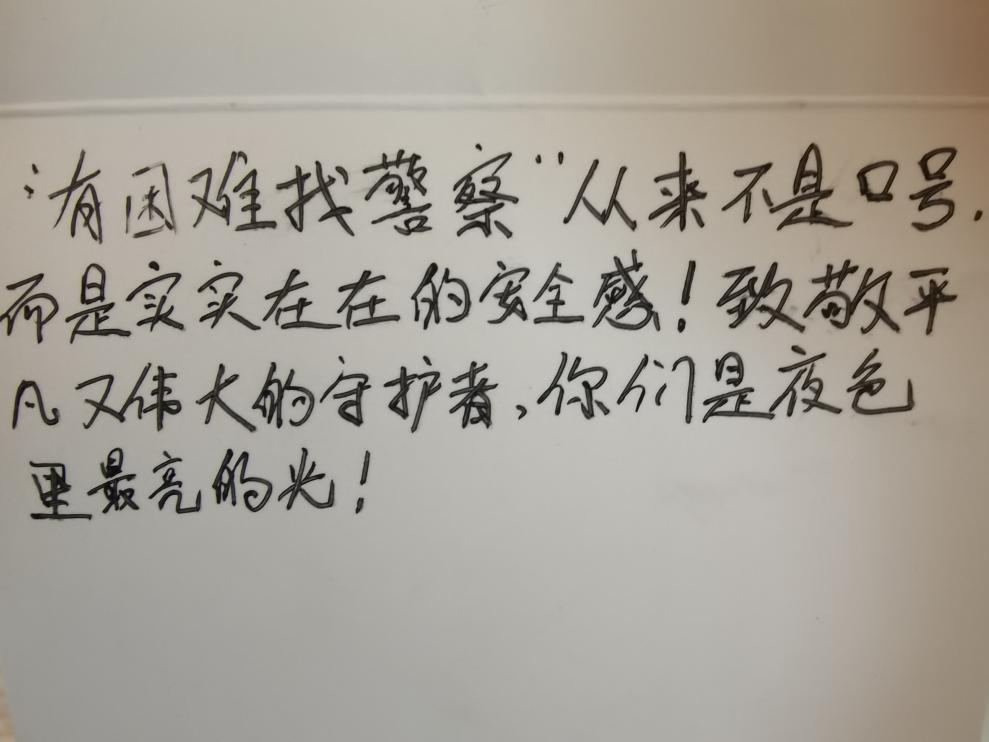 “有困难找警察”从来不是口号,
而是实实在在的安全感！致敬平
凡又伟大的守护者,你们是夜色
里最亮的光！